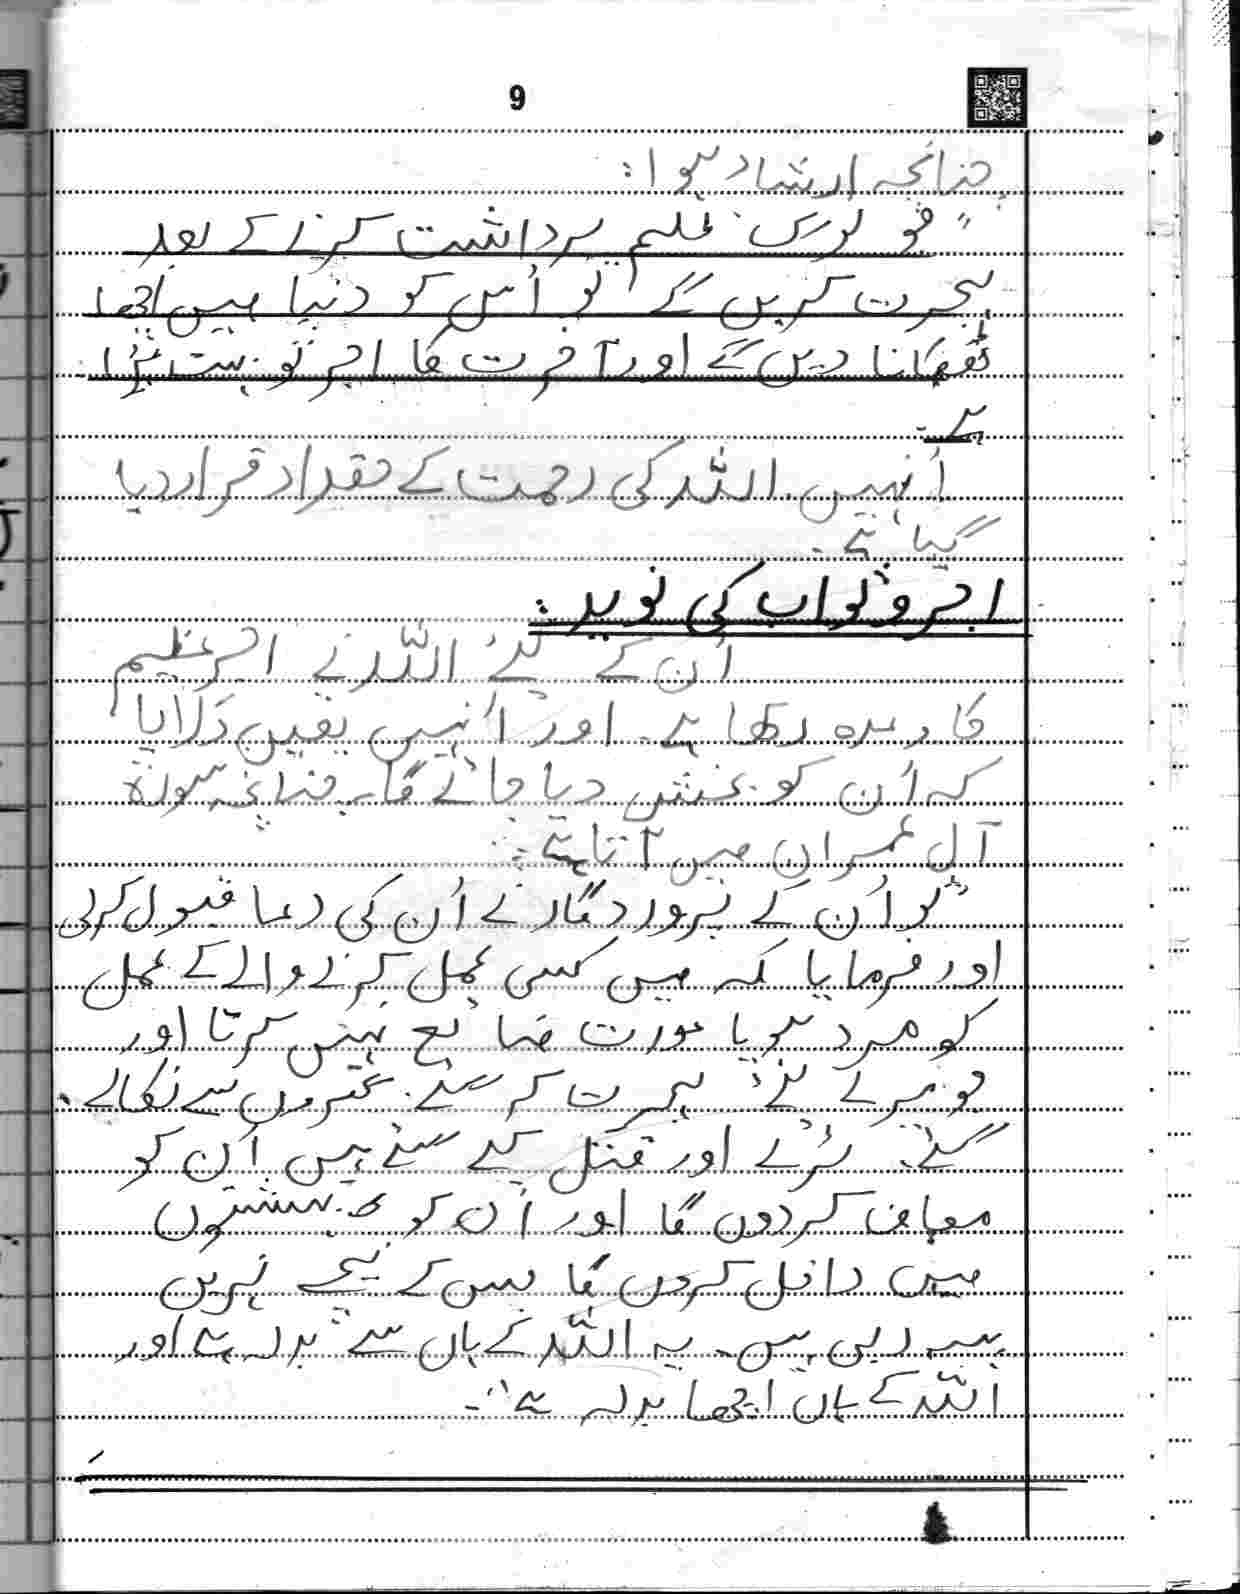 9
چنانچہ ارشاد ہوا:
"جو لوگ ظلم برداشت کرنے کے بعد
ہجرت کریں گے تو اُس کو دنیا میں اچھا
ٹھکانا دیں گے اور آخرت کا اجر تو بہت بڑا
ہے۔
اُنہیں اللہ کی رحمت کے حقدار قرار دیا
گیا ہے۔
اجر و ثواب کی نوید:
اُن کے لئے اللہ نے اجر عظیم
کا وعدہ رکھا ہے۔ اور اُنہیں یقین دلایا
کہ اُن کو بخش دیا جائے گا۔ چنانچہ سورۃ
آل عمران میں آتا ہے:
"تو اُن کے پروردگار نے اُن کی دعا قبول کرلی
اور فرمایا کہ میں کسی عمل کرنے والے کے عمل
کو مرد ہو یا عورت ضائع نہیں کرتا اور
جو میرے لئے ہجرت کر گئے گھروں سے نکالے
گئے لڑے اور قتل کیے گئے ہیں اُن کو
معاف کردوں گا اور اُن کو بہشتوں
میں داخل کروں گا جس کے نیچے نہریں
بہہ رہی ہیں۔ یہ اللہ کے ہاں سے بدلہ ہے اور
اللہ کے ہاں اچھا بدلہ ہے"۔